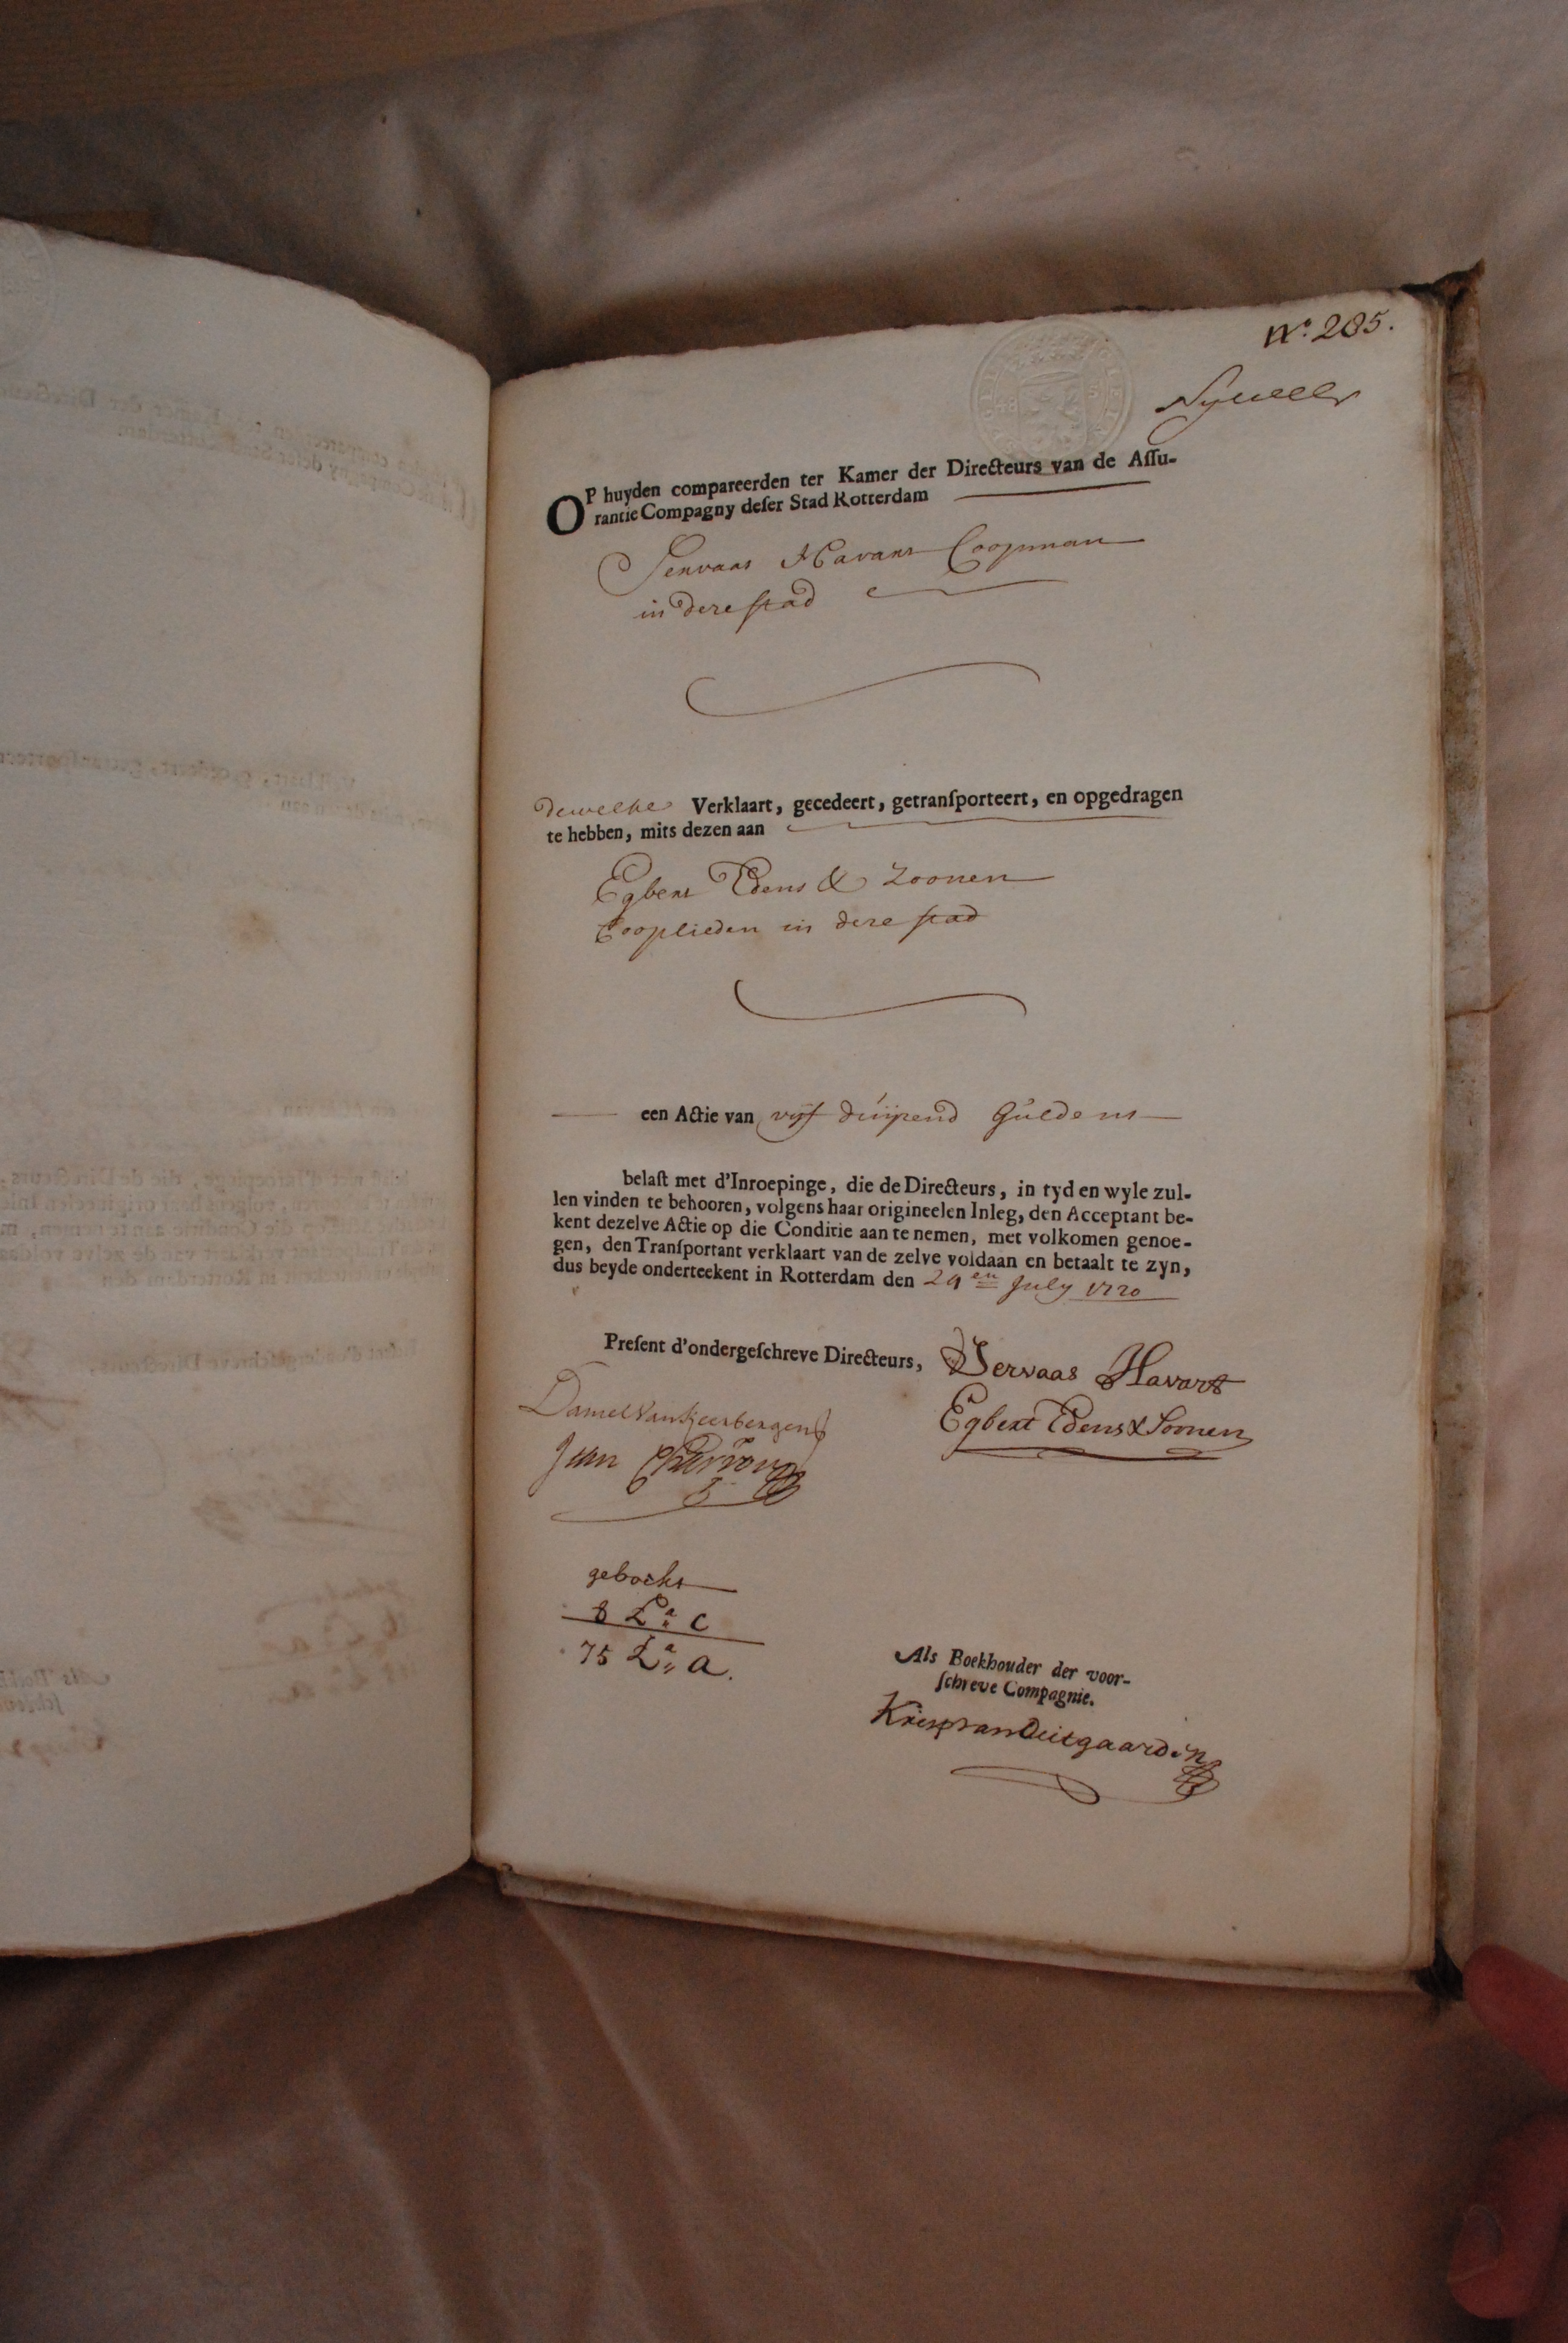 N.º 285.
OP huyden compareerden ter Kamer der Directeurs van de Assu-
rantie Compagny deser Stad Rotterdam
Servaas Havart Coopman
in deze stad
dewelke Verklaart, gecedeert, getransporteert, en opgedragen
te hebben, mits dezen aan
Egbert Edens & Zoonen
Cooplieden in deze stad
een Actie van vijf duijsend Guldens
belast met d'Inroepinge, die de Directeurs, in tyd en wyle zul-
len vinden te behooren, volgens haar origineelen Inleg, den Acceptant be-
kent dezelve Actie op die Conditie aan te nemen, met volkomen genoe-
gen, den Transportant verklaart van de zelve voldaan en betaalt te zyn,
dus beyde onderteekent in Rotterdam den 29en July 1720
Present d'ondergeschreve Directeurs,
Servaas Havart
Egbert Edens & Soonen
Daniel Van
Jean
geboekt
8 La C
75 La a.
Als Boekhouder der voor-
schreve Compagnie.